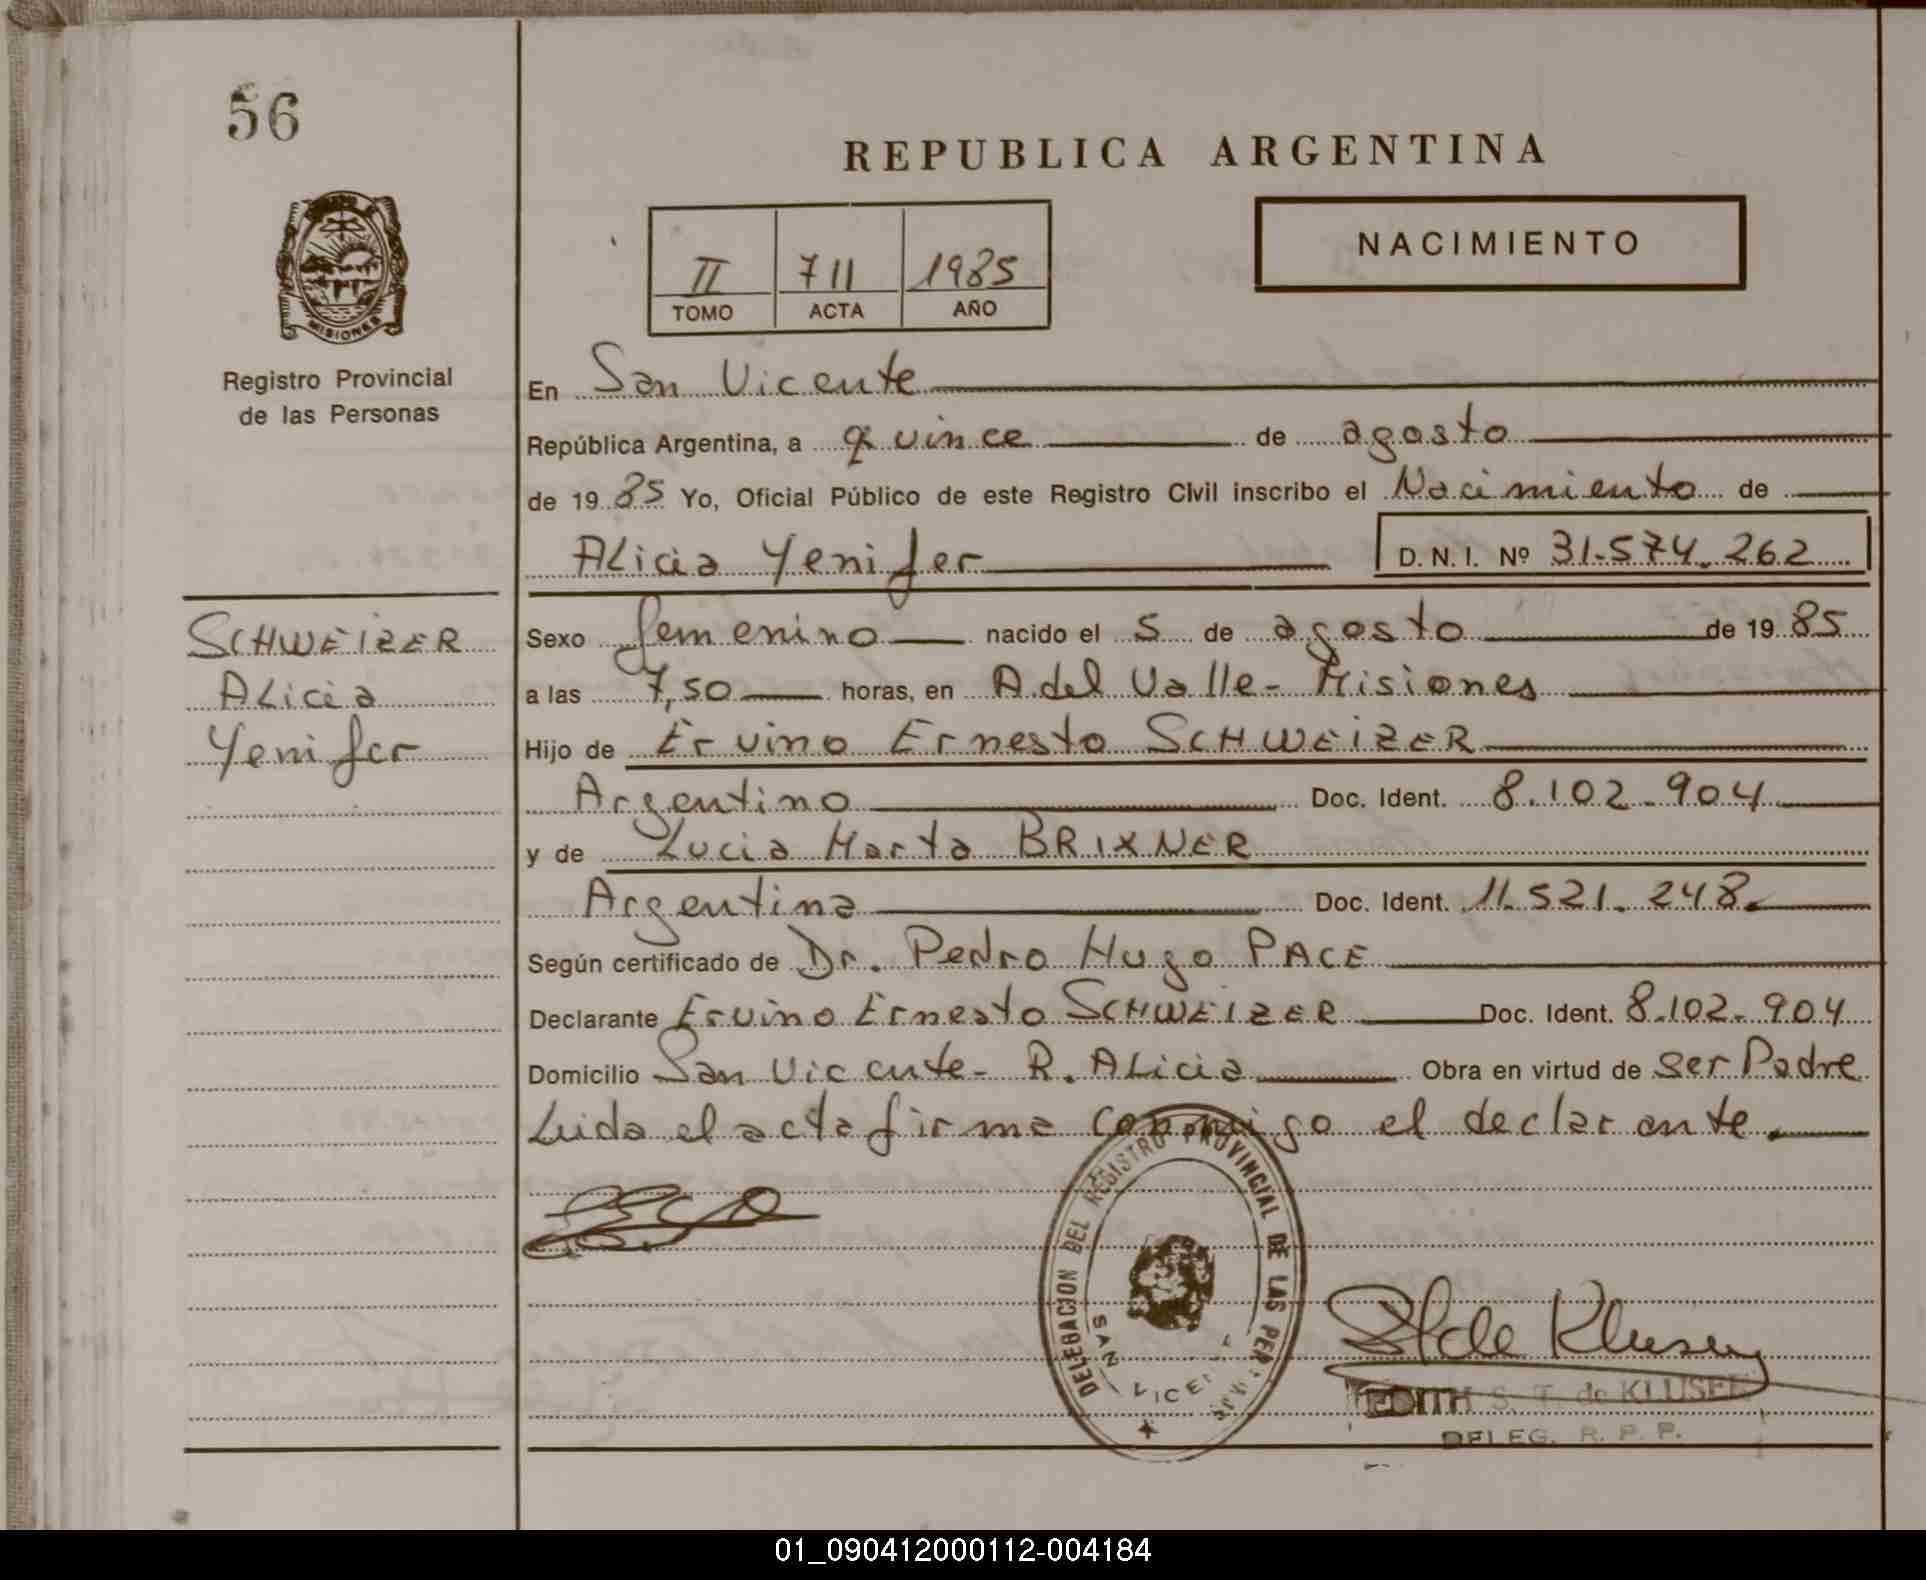 56
REPUBLICA ARGENTINA
MISIONES
Registro Provincial
de las Personas
II 711 1985
TOMO ACTA AÑO
NACIMIENTO
En San Vicente
República Argentina, a quince de agosto
de 1985 Yo, Oficial Público de este Registro Civil inscribo el Nacimiento de
Alicia Yenifer D. N. I. Nº 31.574.262
SCHWEIZER
Alicia
Yenifer
Sexo femenino nacido el 5 de agosto de 1985
a las 7,50 horas, en A. del Valle - Misiones
Hijo de Ervino Ernesto SCHWEIZER
Argentino Doc. Ident. 8.102.904
y de Lucia Marta BRIXNER
Argentina Doc. Ident. 11.521.248.
Según certificado de Dr. Pedro Hugo PACE
Declarante Ervino Ernesto SCHWEIZER Doc. Ident. 8.102.904
Domicilio San Vicente - R. Alicia Obra en virtud de ser Padre
Leida el acta firma conmigo el declarante.
DELEGACION DEL REGISTRO PROVINCIAL DE LAS PER
SAN VICE
de Klusen
EDITH S. T. de KLUSE
DELEG. R. P. P.
01_090412000112-004184